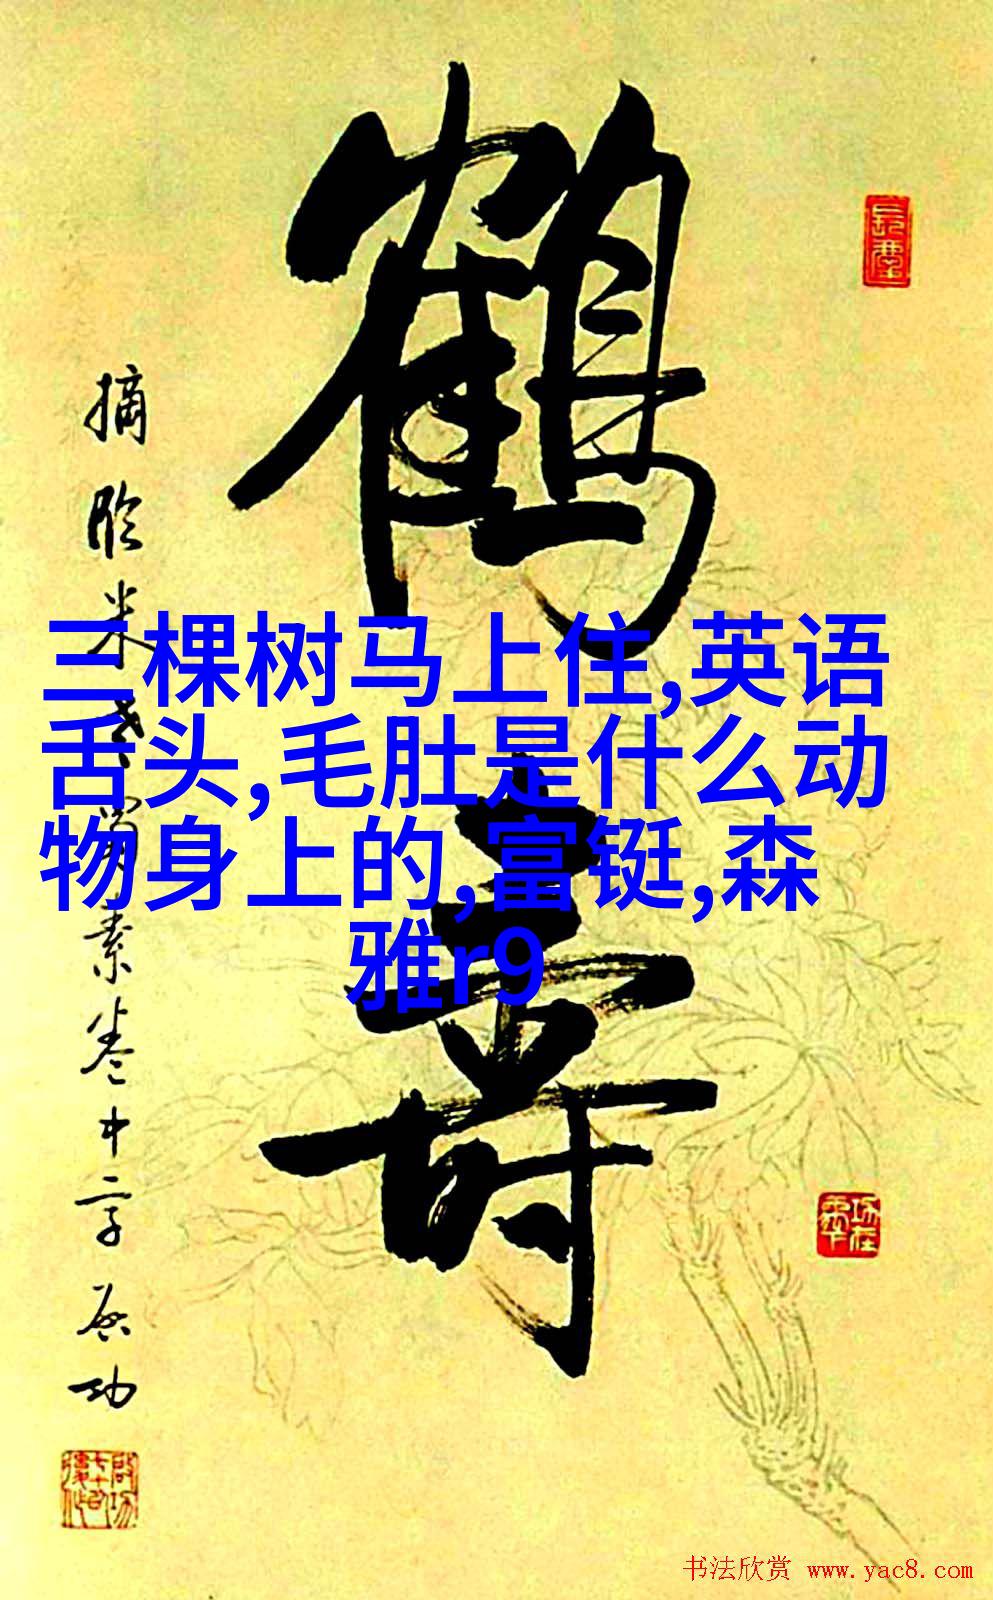 鹤寿
摘临米老蜀素卷中字 启功
三棵树马上住,英语
舌头,毛肚是什么动
物身上的,富铤,森
雅r9
书法欣赏 www.yac8.com